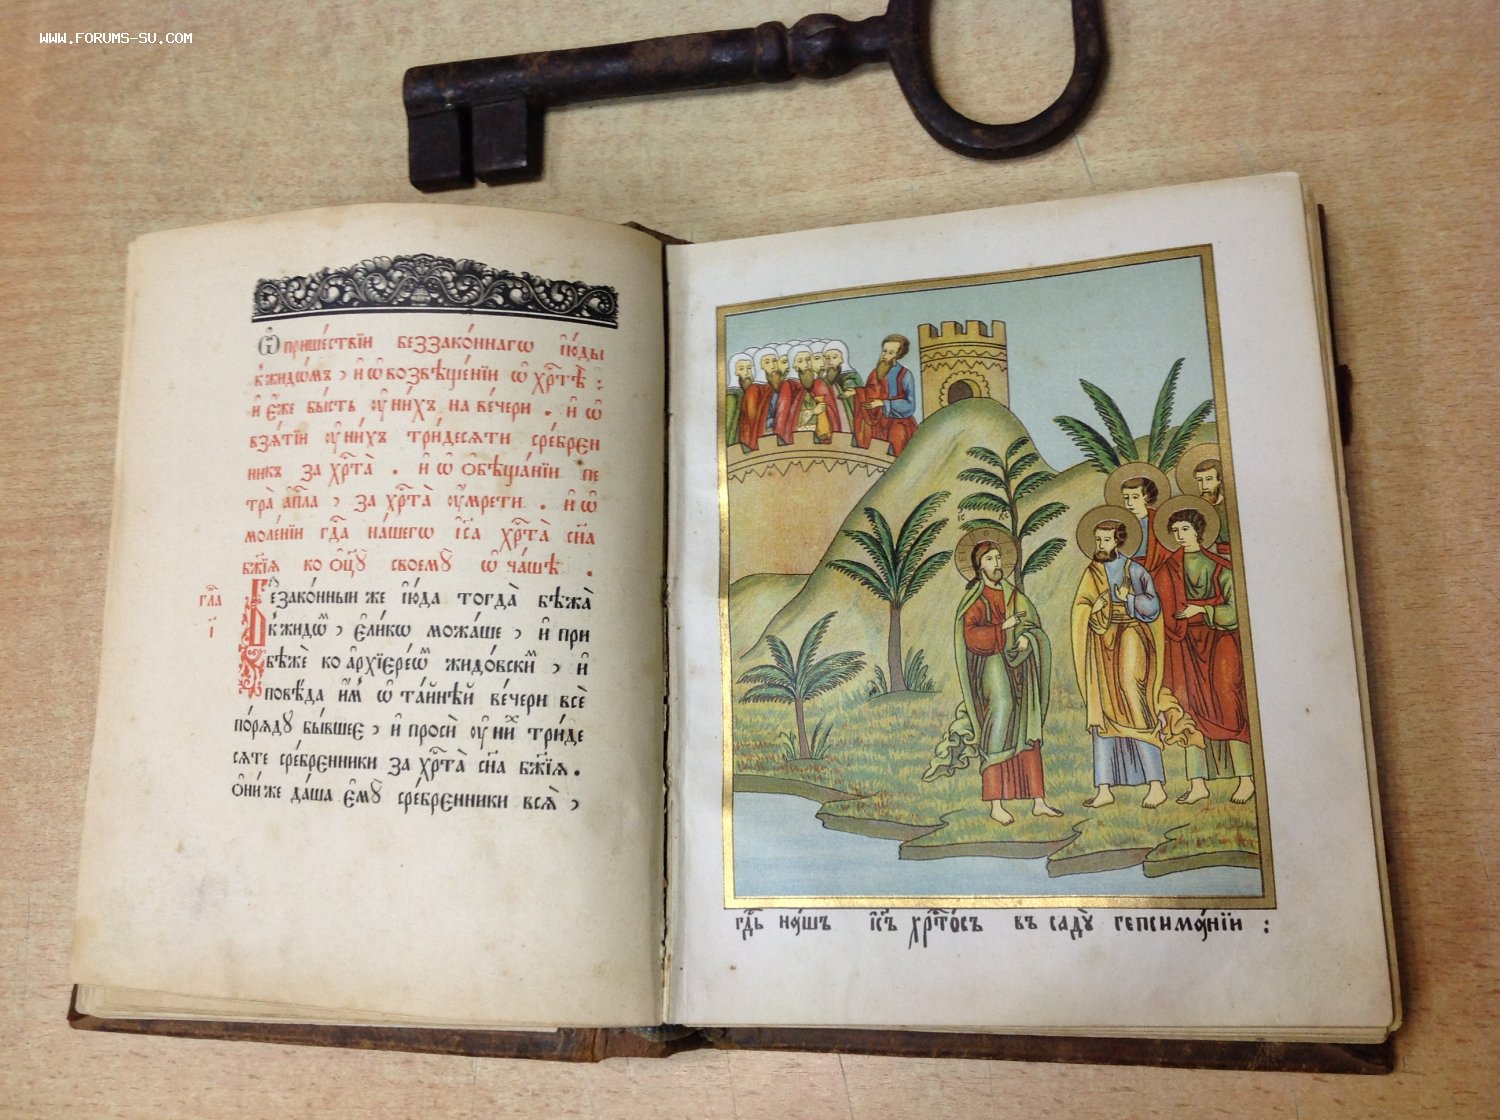 WWW.FORUMS-SU.COM
Ѡ҆ прише́ствїи беззако́ннагѡ і҆ю́ды
к̾жидѡ́мъ, и҆ ѡ҆ возвѣще́нїи ѡ҆ хрⷭ҇тѣ̀:
и҆ є҆́же бы́сть ᲂу҆ ни́хъ на ве́чери. и҆ ѡ҆
взѧ́тїи ᲂу҆ ни́хъ три́десѧти сре́брєн
никъ за хрⷭ҇та̀. и҆ ѡ҆ ѻ҆бѣща́нїи пе
тра̀ а҆пⷭ҇ла, за хрⷭ҇та̀ ᲂу҆мре́ти. и҆ ѡ҆
моле́нїи гдⷭ҇а на́шегѡ і҆с҃а хрⷭ҇та̀ сн҃а
бж҃їѧ ко ѻ҆ц҃ꙋ̀ своемꙋ̀ ѡ҆ ча́шѣ.
гла
і҃
Беззако́нный же і҆ю́да тогда̀ бѣжа̀
к̾жидѡⷨ, є҆ли́кѡ можа́ше, и҆ при
бѣ́же ко а҆рхїерє́ѡⷨ жидо́вскиⷨ, и҆
повѣ́да и҆̀мъ ѡ҆ та́йнѣй ве́чери всѐ
порѧ́дꙋ бы́вшеє, и҆ просѝ ᲂу҆ ни́хъ три́де
сѧте сре́брєнники за хрⷭ҇та̀ сн҃а бж҃їѧ.
ѻ҆ни́ же да́ша є҆мꙋ̀ сре́брєнники всѧ̀,
гдⷭ҇ь на́шъ і҆с҃ъ хрⷭ҇то́съ въ садꙋ̀ гепсима́нїи: